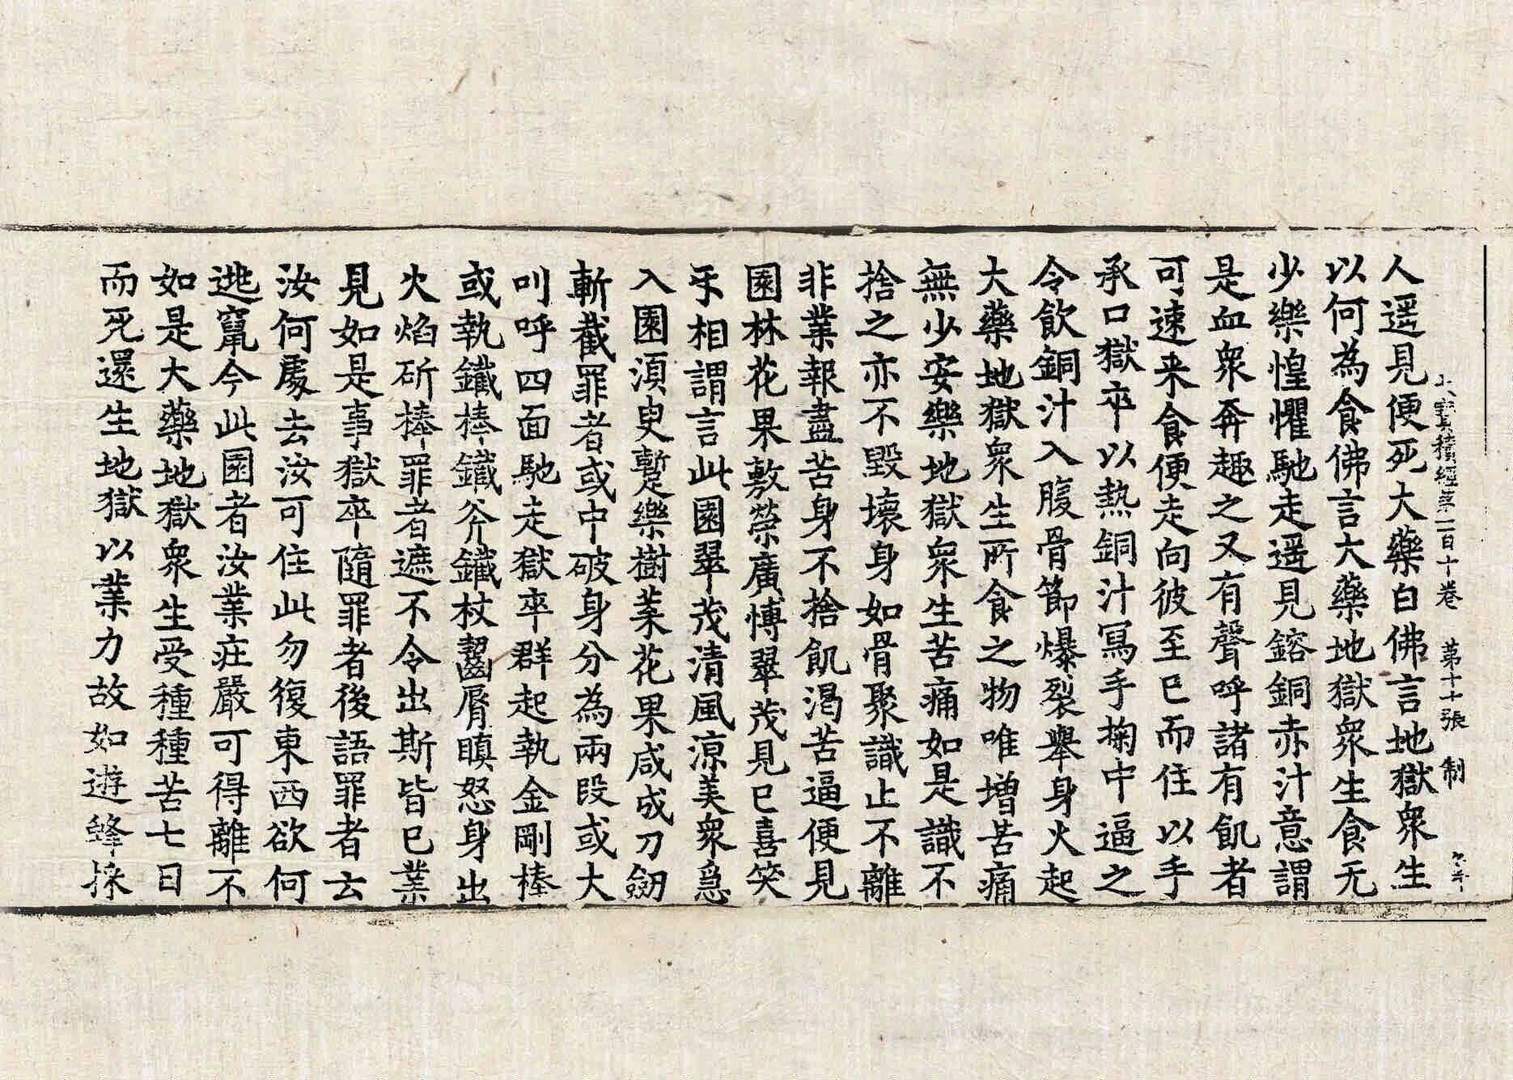 大寶積經第一百十卷 第十 張 制
人遥見便死大藥白佛言地獄衆生
以何為食佛言大藥地獄衆生食无
少樂惶懼馳走遥見鎔銅赤汁意謂
是血衆奔趣之又有聲呼諸有飢者
可速来食便走向彼至已而住以手
承口獄卒以熱銅汁冩手掬中逼之
令飲銅汁入腹骨節爆裂舉身火起
大藥地獄衆生所食之物唯增苦痛
無少安樂地獄衆生苦痛如是識不
捨之亦不毀壞身如骨聚識止不離
非業報盡苦身不捨飢渴苦逼便見
園林花果敷榮廣博翠茂見已喜笑
㸦相謂言此園翠茂清風凉美衆急
入園須臾暫樂樹葉花果咸成刀劒
斬截罪者或中破身分為兩段或大
叫呼四面馳走獄卒群起執金剛棒
或執鐵棒鐵斧鐵杖齧脣瞋怒身出
火焰斫棒罪者遮不令出斯皆已業
見如是事獄卒隨罪者後語罪者云
汝何處去汝可住此勿復東西欲何
逃竄今此園者汝業莊嚴可得離不
如是大藥地獄衆生受種種苦七日
而死還生地獄以業力故如遊蜂採